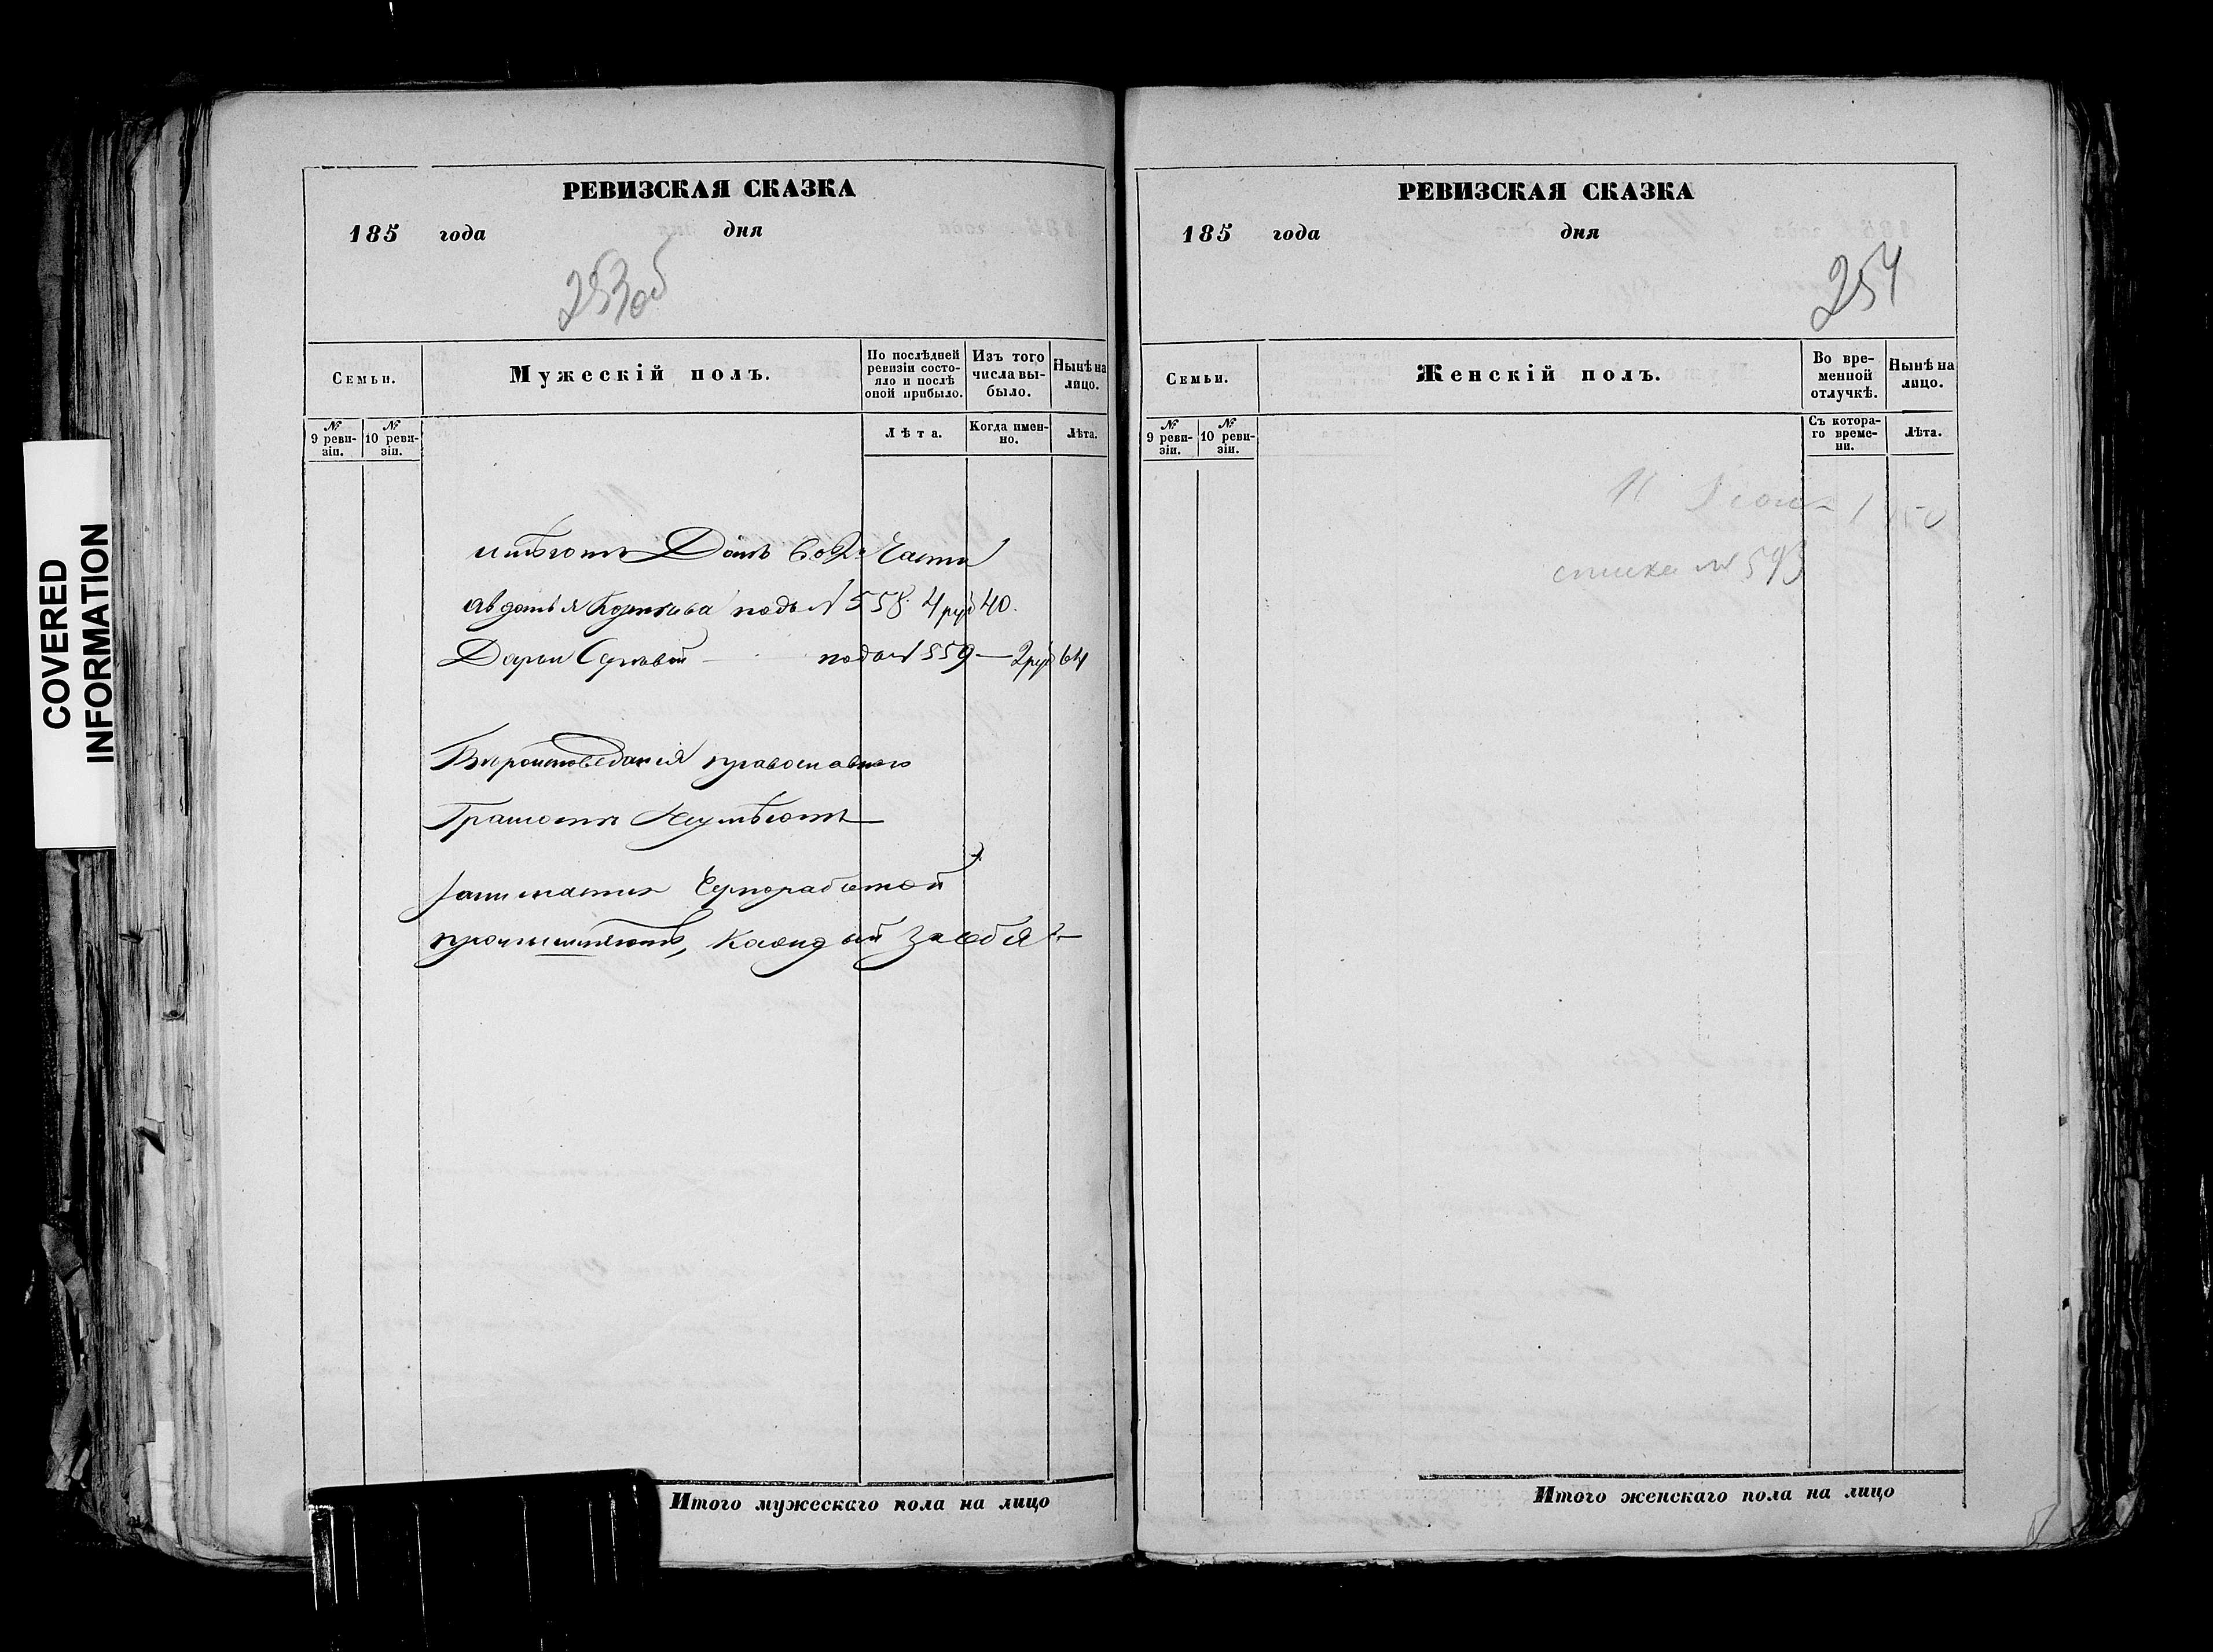 COVERED
INFORMATION
РЕВИЗСКАЯ СКАЗКА
185 года дня
253об
Семьи.
Мужескій полъ.
По послѣдней ревизіи состояло и послѣ оной прибыло.
Изъ того числа выбыло.
Нынѣ на лицо.
№ 9 ревизіи.
№ 10 ревизіи.
Лѣта.
Когда именно.
Лѣта.
имѣютъ Домъ во 2й Части
подъ № 558. 4 руб 40.
Дарьи подъ № 559 — 2 руб 64
Вѣроисповеданія православнаго
Грамотѣ Неумѣютъ
занимаются Черноработой
промышляютъ, Каждый за себя
Итого мужескаго пола на лицо
РЕВИЗСКАЯ СКАЗКА
185 года дня
254
Семьи.
Женскій полъ.
Во временной отлучкѣ.
Нынѣ на лицо.
№ 9 ревизіи.
№ 10 ревизіи.
Съ котораго времени.
Лѣта.
11
списка № 593
Итого женскаго пола на лицо